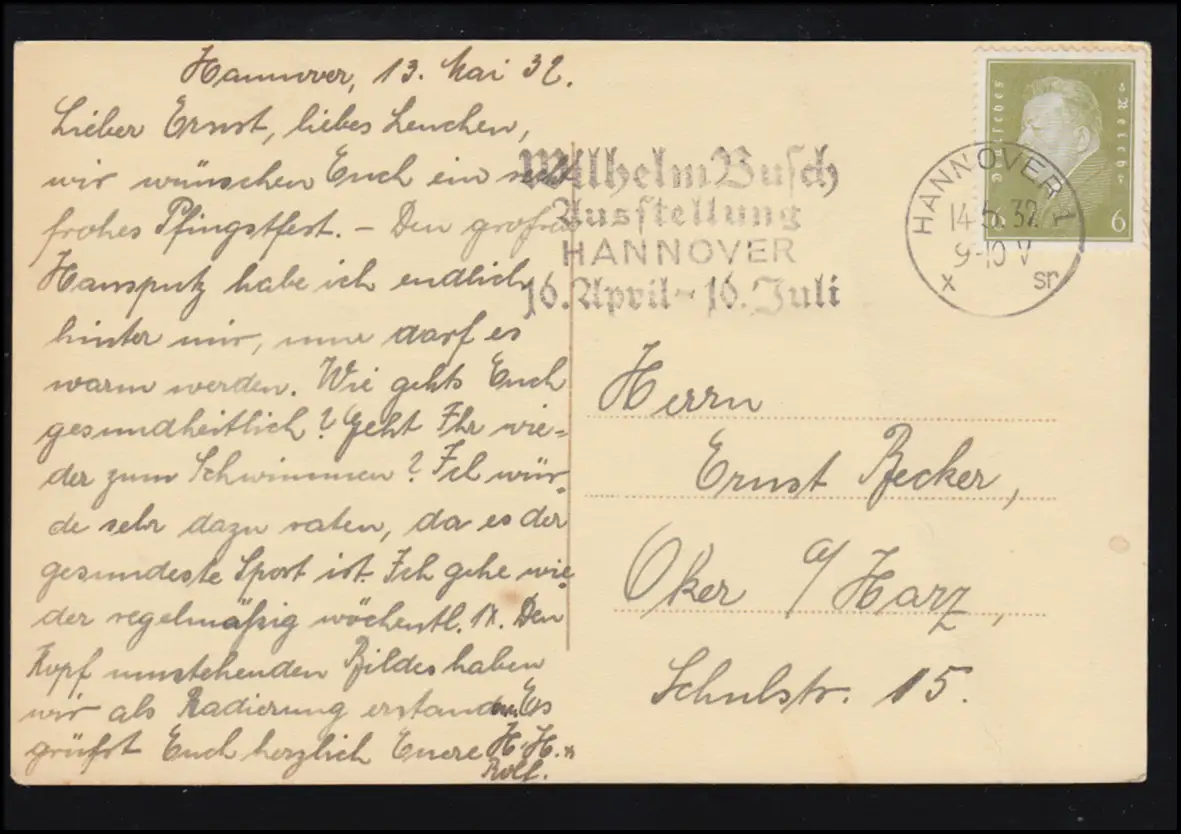 Hannover, 13. Mai 32.
Lieber Ernst, liebes Lenchen,
wir wünschen Euch ein
frohes Pfingstfest. – Den großen
Hausputz habe ich endlich
hinter mir, nun darf es
warm werden. Wie gehts Euch
gesundheitlich? Geht Ihr wie=
der zum Schwimmen? Ich wür-
de sehr dazu raten, da es der
gesundeste Sport ist. Ich gehe wie
der regelmäßig wöchentl. 1x. Den
Kopf umstehenden Bildes haben
wir als Radierung erstanden. Es
grüßt Euch herzlich Euere H. H. u
Rolf.
Wilhelm Busch
Ausstellung
HANNOVER
16. April – 16. Juli
Deutsches Reich
6 6
HANNOVER 1
14.5.32.
9-10 V
x sr
Herrn
Ernst Becker,
Oker a/Harz,
Schulstr. 15.